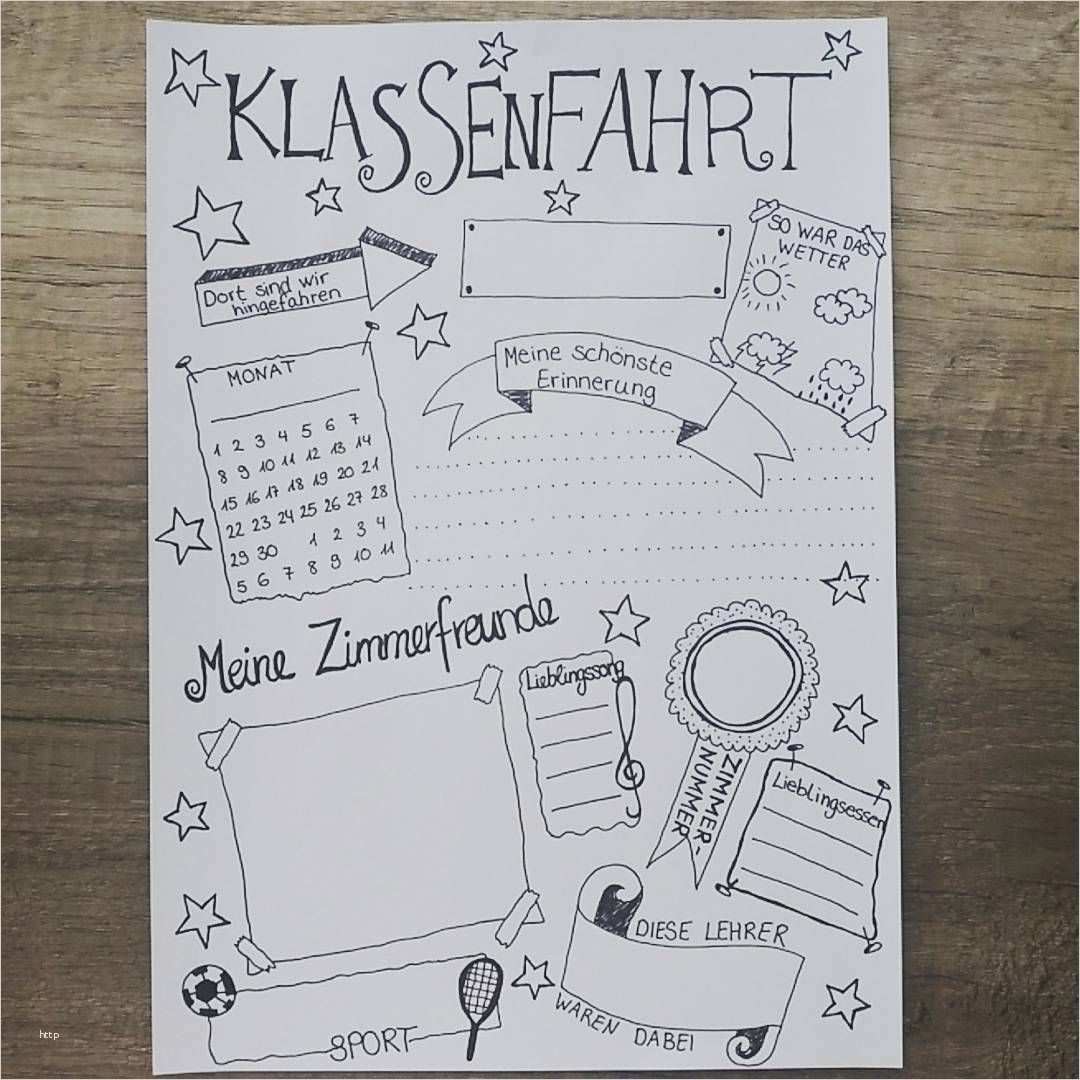 KLASSENFAHRT
Dort sind wir
hingefahren
SO WAR DAS
WETTER
MONAT
1 2 3 4 5 6 7
8 9 10 11 12 13 14
15 16 17 18 19 20 21
22 23 24 25 26 27 28
29 30 1 2 3 4
5 6 7 8 9 10 11
Meine schönste
Erinnerung
Meine Zimmerfreunde
Lieblingssong
ZIMMER-
NUMMER
Lieblingsessen
DIESE LEHRER
WAREN DABEI
SPORT
http